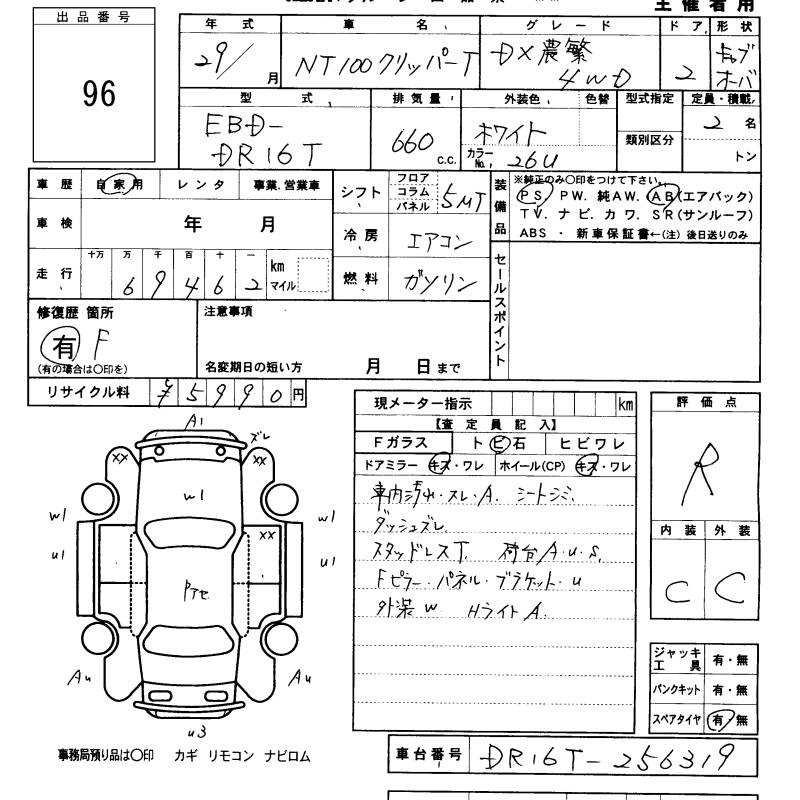 主催者用
出品番号
96
年式 車名 グレード ドア 形状
29/ 月 NT100クリッパーT DX農繁 4WD 2 キャブオーバ
型式 排気量 外装色 色替 型式指定 定員・積載
EBD-DR16T 660 c.c. ホワイト 類別区分 2 名
カラーNo. 26U トン
車歴 自家用 レンタ 事業.営業車
シフト フロア コラム パネル 5MT
装備品 ※純正のみ○印をつけて下さい。
PS PW. 純AW. AB(エアバック)
TV. ナビ. カワ. SR(サンルーフ)
ABS ・ 新車保証書←(注)後日送りのみ
車検 年 月
冷房 エアコン
走行 十万 万 千 百 十 一 km マイル
6 9 4 6 2
燃料 ガソリン
セールスポイント
修復歴 箇所
有 F
(有の場合は○印を)
注意事項
名変期日の短い方 月 日まで
リサイクル料 ¥5990円
現メーター指示 km
【査定員記入】
Fガラス トビ石 ヒビワレ
ドアミラー キズ・ワレ ホイール(CP) キズ・ワレ
車内汚れ・スレ・A. シートシミ.
ダッシュズレ
スタッドレスT. 荷台A・U・S.
Fピラー・パネル・ブラケット・U
外装W HライトA.
評価点
R
内装 外装
C C
ジャッキ工具 有・無
パンクキット 有・無
スペアタイヤ 有・無
A1
ズレ
XX XX
W1
W1 W1
U1 XX U1
Pアセ
AU AU
U3
事務局預り品は○印 カギ リモコン ナビロム
車台番号 DR16T-256319